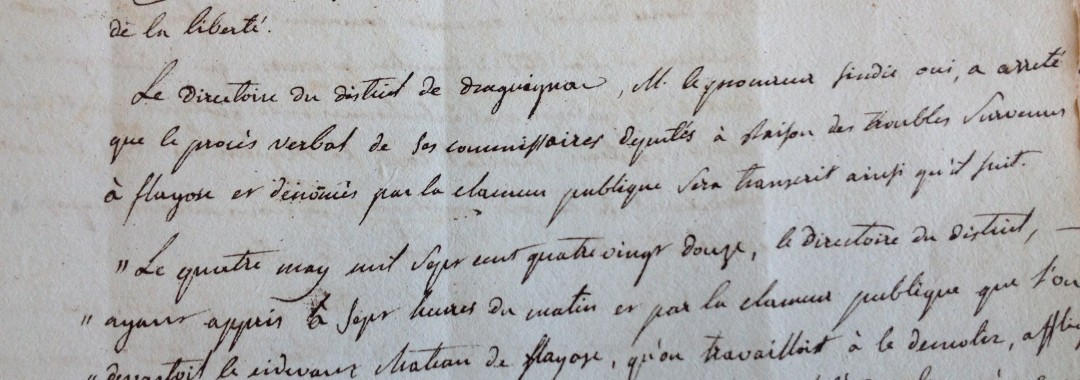 de la liberté.
Le Directoire du district de draguignan, M. le procureur sindic oui, a arreté
que le procés verbal de ses commissaires deputés à Raison des troubles survenus
à flayosc et dénoncés par la clameur publique sera transcrit ainsi qu'il suit.
" Le quatre may mil sept cent quatre vingt douze, le directoire du district,
" ayant appris à sept heures du matin et par la clameur publique que l'on
" devastoit le cidevant chateau de flayosc, qu'on travailloit à le demolir,